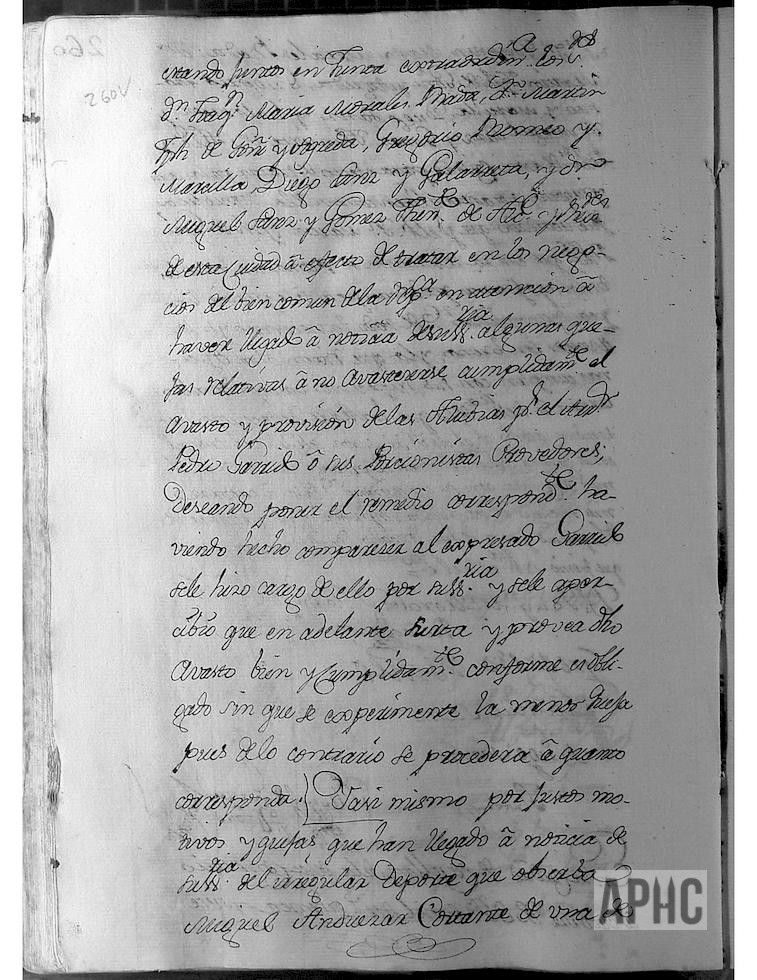 260v
estando juntos en Junta extraordin.ª los s.res
d.n Joaq.n Maria Morales, Prada, d.n Martin
Jph de Goñi y Agreda, Gregorio Romeo y
Maralla Diego Sanz y Galarreta, y d.n
Miguel Sanz y Gomez
de esta Ciudad â efecto de tratar en los nego-
cios del bien comun de la Rep.ca en atencion â
haver llegado â noticia de su SS.ria algunas que-
jas relativas â no Avastecerse cumplidam.te el
Avasto y provision de las Medias p.r el
Pedro Garrido ô sus Porcionistas Provedores;
Deseando poner el remedio correspond.te ha-
viendo hecho comparecer al expresado Garrido
se le hizo cargo de ello por su SS.ria y se le aper-
cibió que en adelante surta y provea dho
Avasto bien y Cumplidam.te conforme es obli-
gado sin que se experimente la menor queja
pues de lo contrario se procedera â quanto
corresponda. Y asi mismo por justos mo-
tivos y quejas que han llegado â noticia de
su SS.ria del irregular Deporte que obserba
Miguel Andueza Cortante de una de
APHC